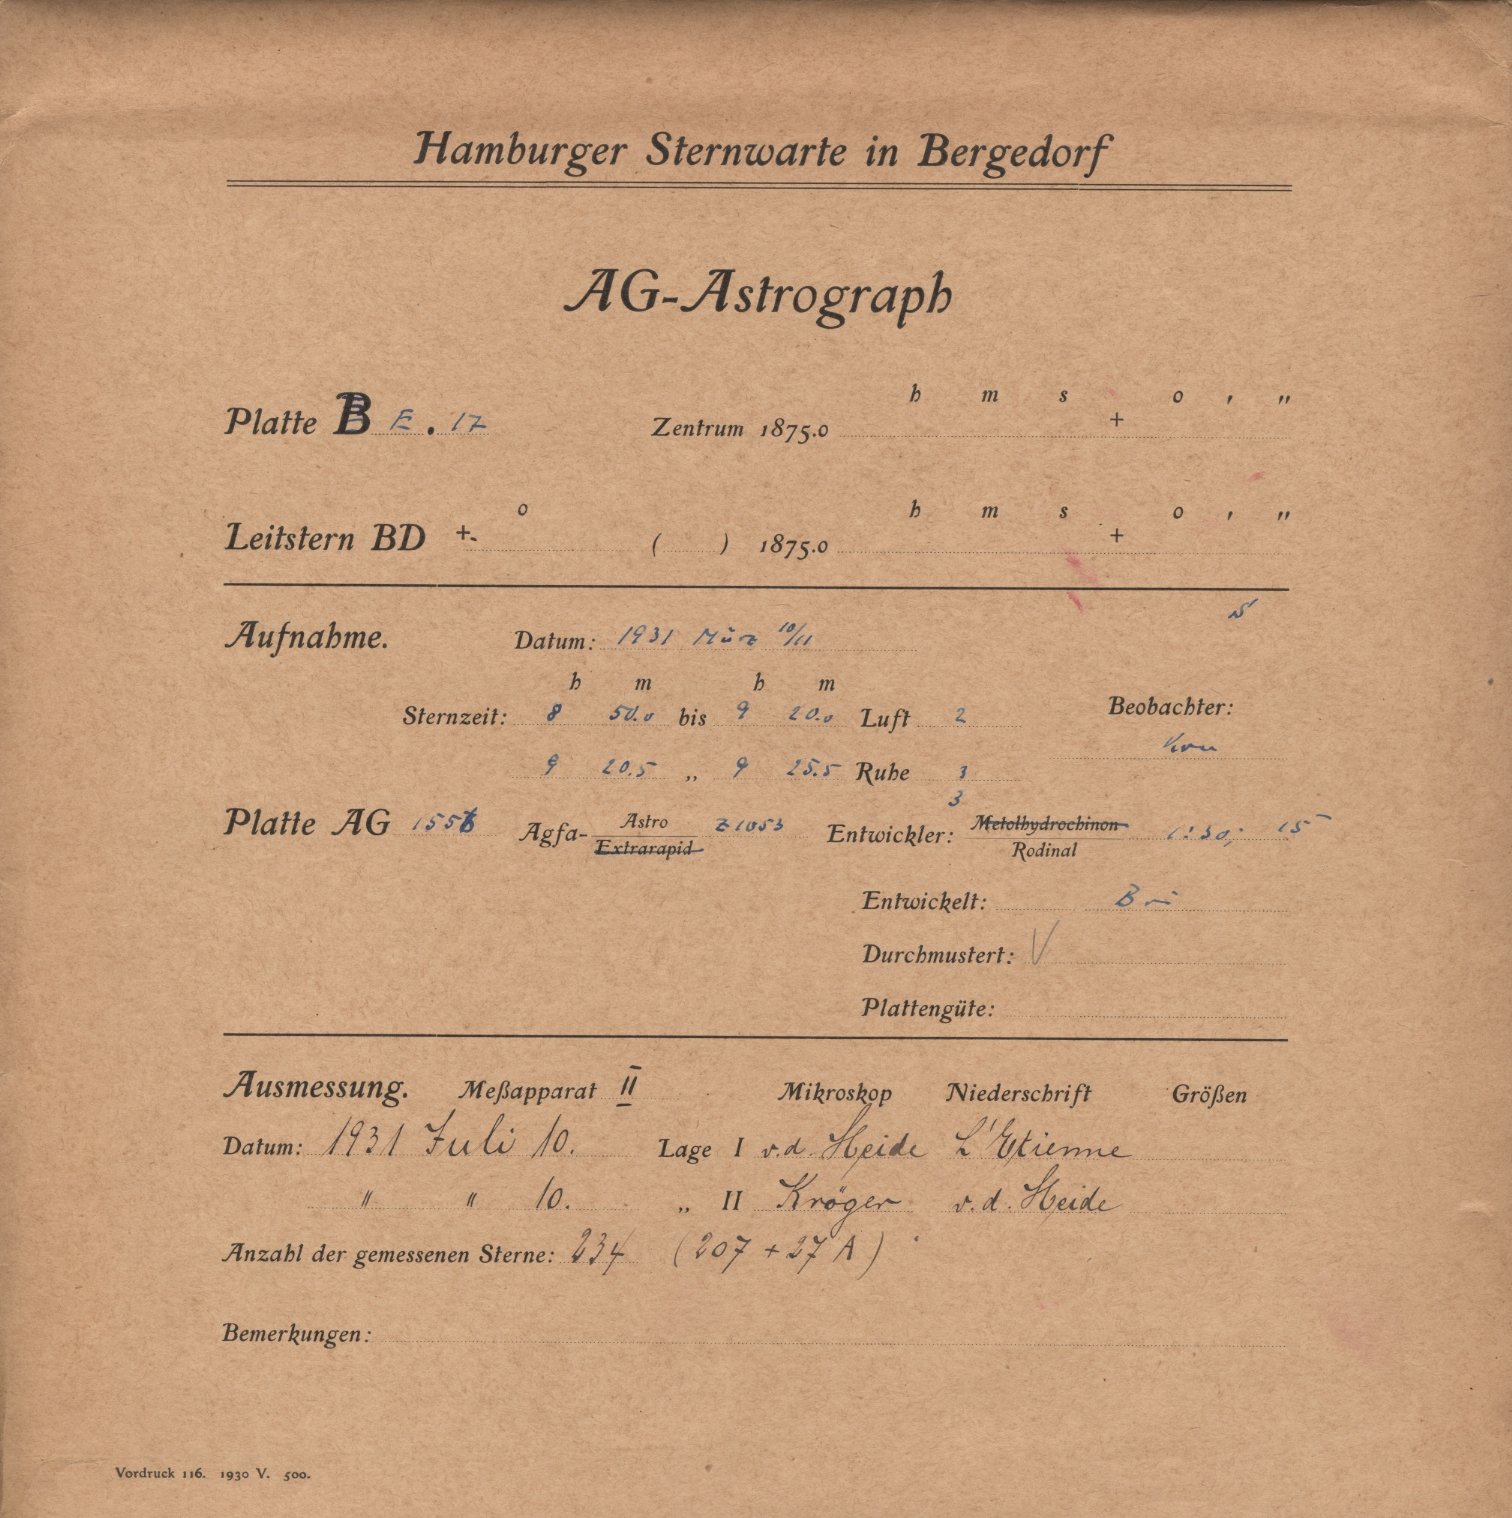 Hamburger Sternwarte in Bergedorf
AG-Astrograph
h m s o ' "
Platte B E. 17 Zentrum 1875.0 +
o h m s o ' "
Leitstern BD +- ( ) 1875.0 +
Aufnahme. Datum: 1931 März 10/11
h m h m
Sternzeit: 8 50.0 bis 9 20.0 Luft 2 Beobachter:
9 20.5 „ 9 25.5 Ruhe 3
3
Platte AG 1556 Agfa- Astro Z1053 Entwickler: Metolhydrochinon 1:30; 15
Extrarapid Rodinal
Entwickelt:
Durchmustert: V
Plattengüte:
Ausmessung. Meßapparat II Mikroskop Niederschrift Größen
Datum: 1931 Juli 10. Lage I v.d. Heide L'Etienne
" " 10. „ II Kröger v.d. Heide
Anzahl der gemessenen Sterne: 234 (207 + 27 A)
Bemerkungen:
Vordruck 116. 1930 V. 500.